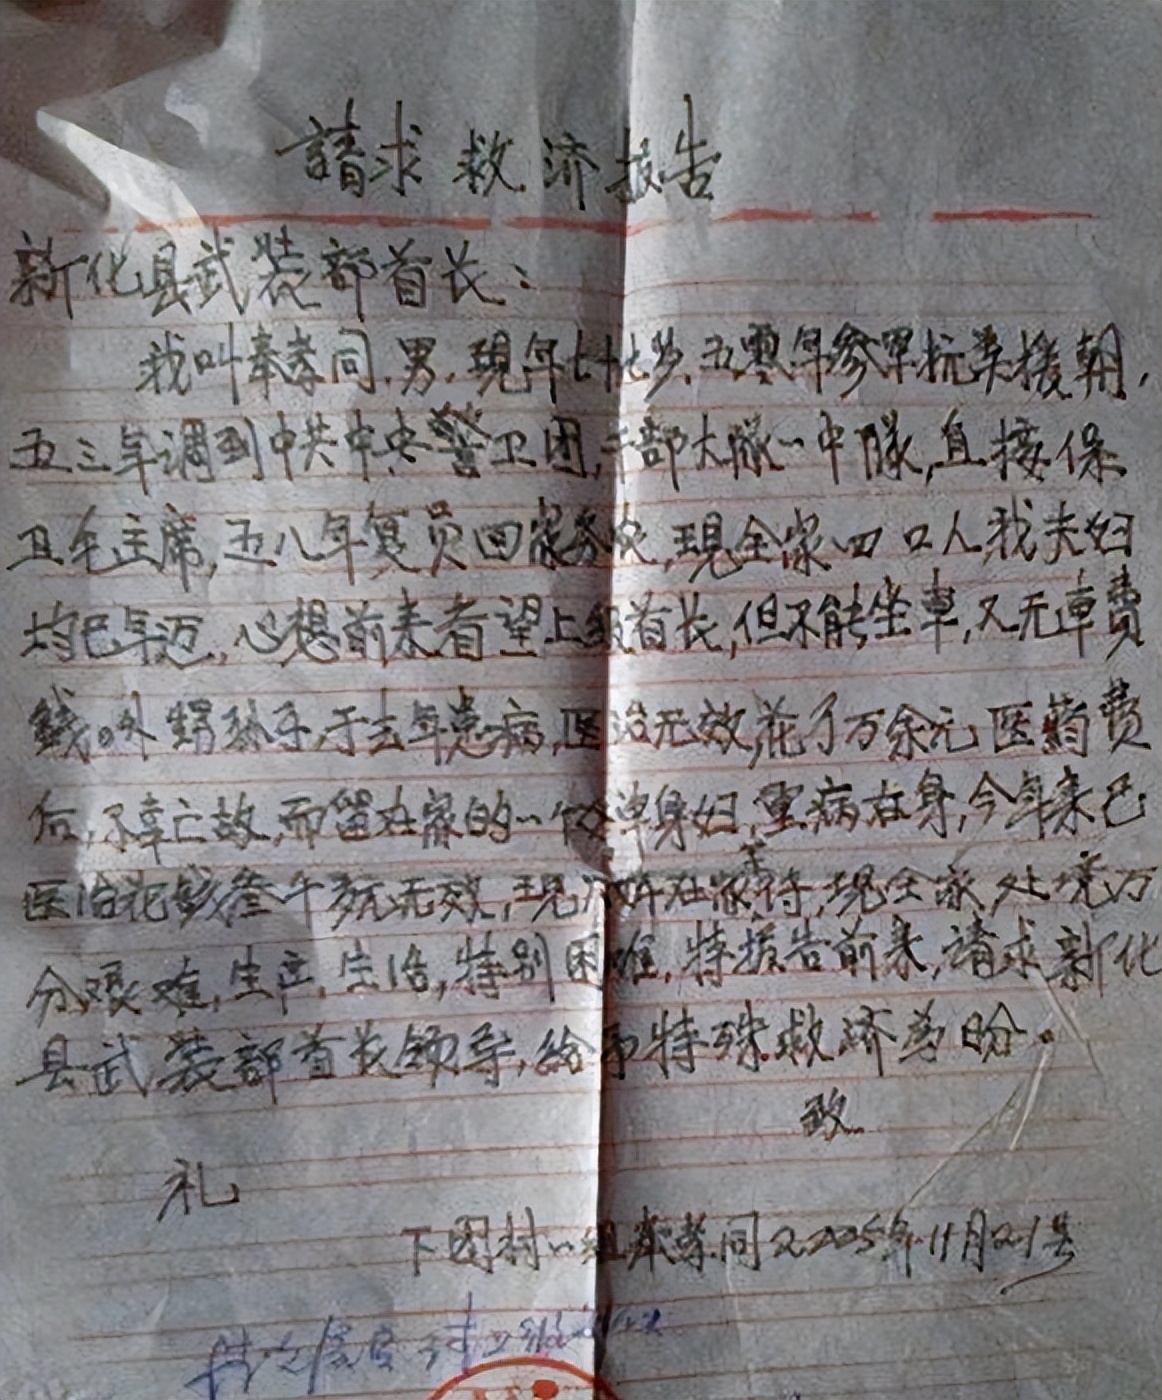 請求救济报告
新化县武装部首长：
我叫奉孝同,男,现年七十七岁,五零年参军抗美援朝,
五三年调到中共中央警卫团,干部大队一中队,直接保
卫毛主席,五八年复员回家务农,现全家四口人,我夫妇
均已年迈,心想前来看望上级首长,但不能坐車,又无車费
钱。外甥孙子于去年患病,医治无效,花了万余元医药费
后,不幸亡故,而留在家的一个单身妇,重病在身,今年来已
医治花錢叁千多元无效,现在家待,现全家处境万
分艰难,生产,生活,特别困难,特报告前来,请求新化
县武装部首长领导,给予特殊救济为盼。
致
礼
下团村一组奉孝同 2005年11月21号